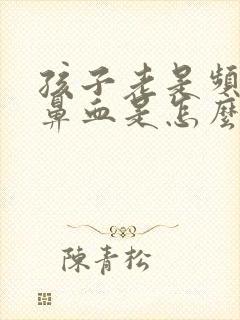 孩子老是頻
鼻血是怎麼
陳青松